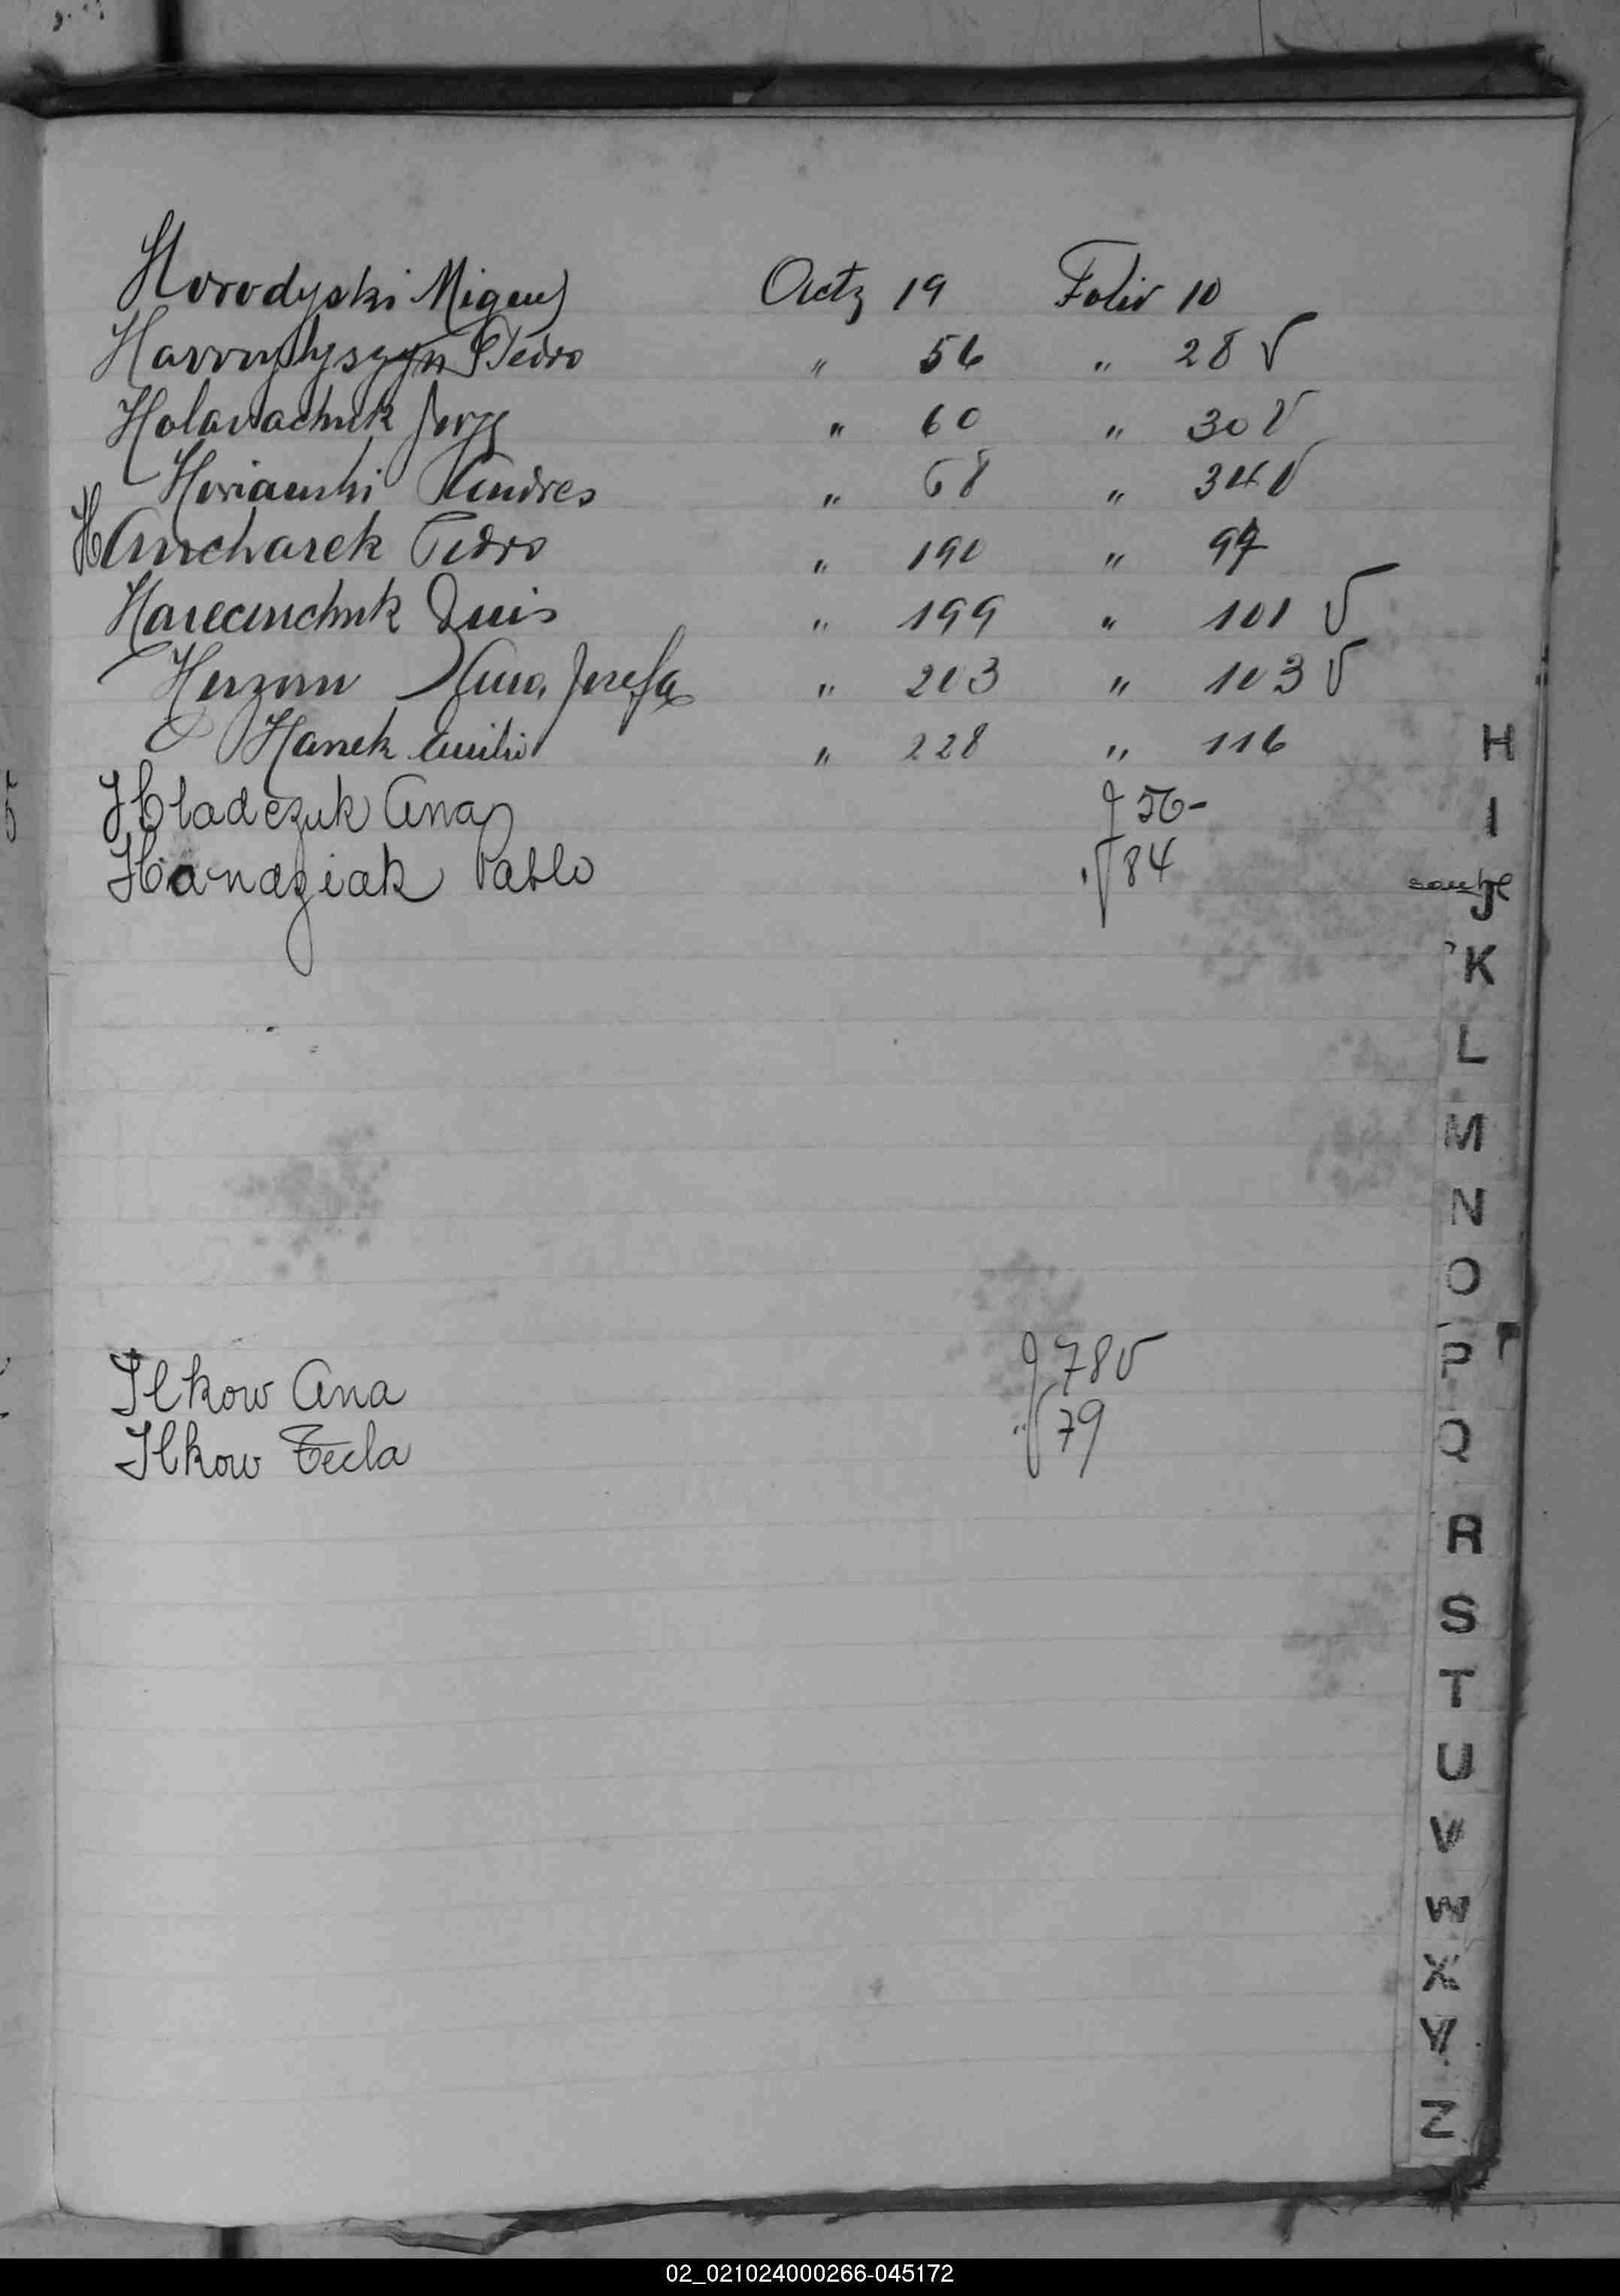 Horodyski Miguel Acta 19 Folio 10
Pedro " 56 " 28 V
Holawachuk Jorge " 60 " 30 V
Horianski Andres " 68 " 34 V
Hancharek Pedro " 190 " 97
Luis " 199 " 101 V
Ana Josefa " 203 " 103 V
Hanek Emilio " 228 " 116
Hladczuk Ana f 56-
Handziak Pablo " f 84
Ilkow Ana f 78 v
Ilkow Tecla " f 79
H
I
J
K
L
M
N
O
P
Q
R
S
T
U
V
W
X
Y
Z
02_021024000266-045172